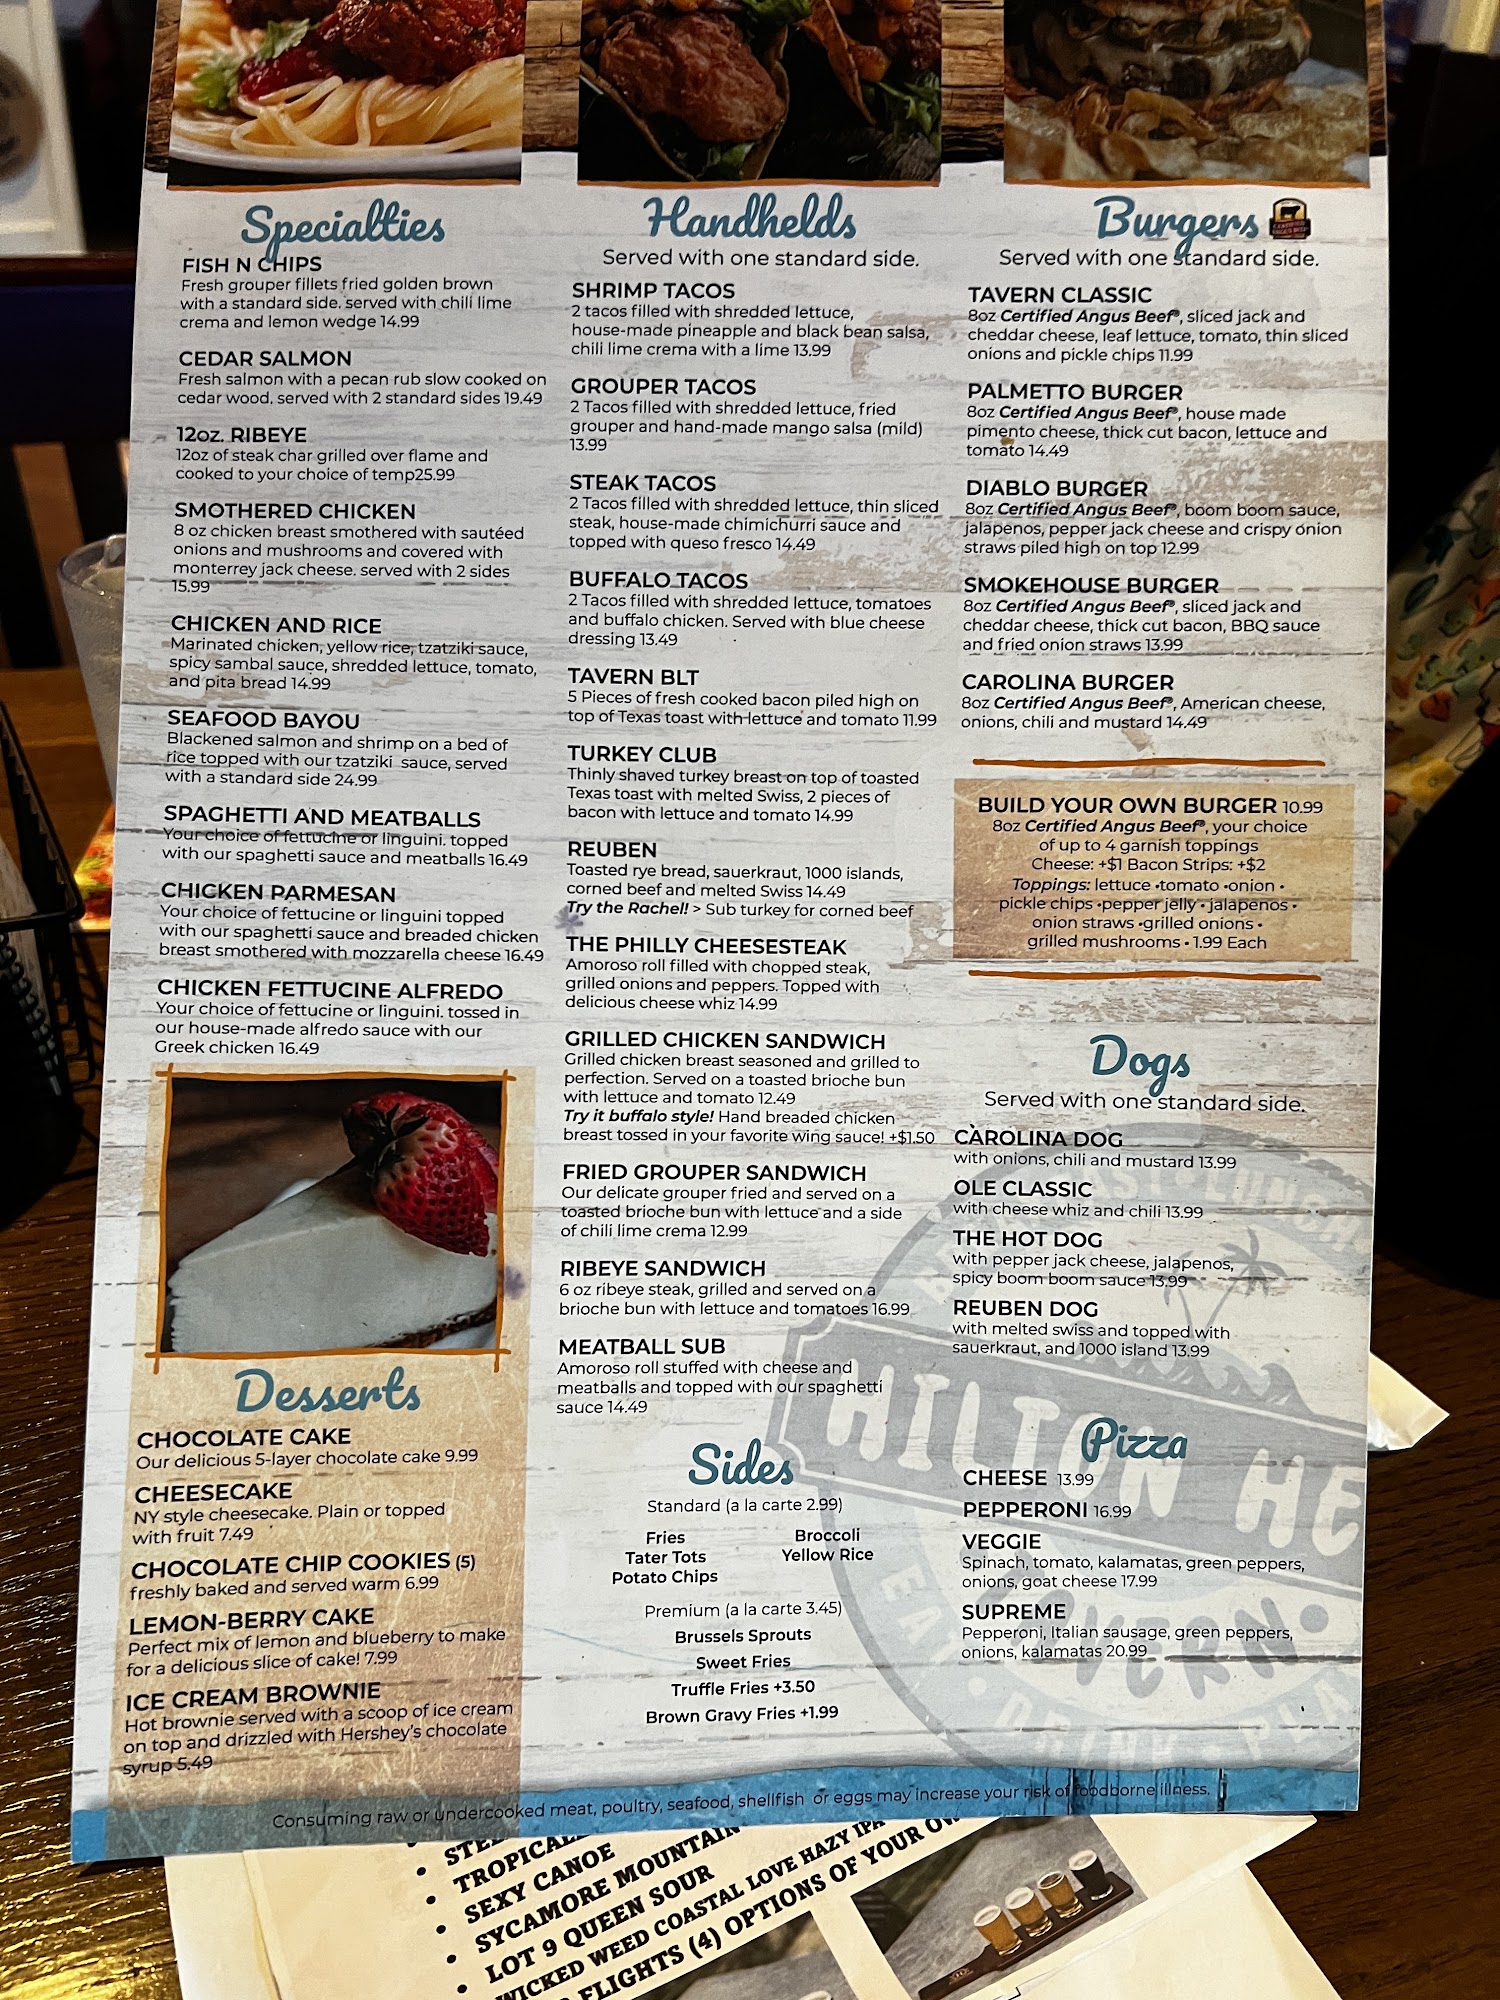 Specialties
FISH N CHIPS
Fresh grouper fillets fried golden brown
with a standard side. served with chili lime
crema and lemon wedge 14.99
CEDAR SALMON
Fresh salmon with a pecan rub slow cooked on
cedar wood. served with 2 standard sides 19.49
12oz. RIBEYE
12oz of steak char grilled over flame and
cooked to your choice of temp25.99
SMOTHERED CHICKEN
8 oz chicken breast smothered with sautéed
onions and mushrooms and covered with
monterrey jack cheese. served with 2 sides
15.99
CHICKEN AND RICE
Marinated chicken, yellow rice, tzatziki sauce,
spicy sambal sauce, shredded lettuce, tomato,
and pita bread 14.99
SEAFOOD BAYOU
Blackened salmon and shrimp on a bed of
rice topped with our tzatziki sauce, served
with a standard side 24.99
SPAGHETTI AND MEATBALLS
Your choice of fettucine or linguini. topped
with our spaghetti sauce and meatballs 16.49
CHICKEN PARMESAN
Your choice of fettucine or linguini topped
with our spaghetti sauce and breaded chicken
breast smothered with mozzarella cheese 16.49
CHICKEN FETTUCINE ALFREDO
Your choice of fettucine or linguini. tossed in
our house-made alfredo sauce with our
Greek chicken 16.49
Desserts
CHOCOLATE CAKE
Our delicious 5-layer chocolate cake 9.99
CHEESECAKE
NY style cheesecake. Plain or topped
with fruit 7.49
CHOCOLATE CHIP COOKIES (5)
freshly baked and served warm 6.99
LEMON-BERRY CAKE
Perfect mix of lemon and blueberry to make
for a delicious slice of cake! 7.99
ICE CREAM BROWNIE
Hot brownie served with a scoop of ice cream
on top and drizzled with Hershey's chocolate
syrup 5.49
Handhelds
Served with one standard side.
SHRIMP TACOS
2 tacos filled with shredded lettuce,
house-made pineapple and black bean salsa,
chili lime crema with a lime 13.99
GROUPER TACOS
2 Tacos filled with shredded lettuce, fried
grouper and hand-made mango salsa (mild)
13.99
STEAK TACOS
2 Tacos filled with shredded lettuce, thin sliced
steak, house-made chimichurri sauce and
topped with queso fresco 14.49
BUFFALO TACOS
2 Tacos filled with shredded lettuce, tomatoes
and buffalo chicken. Served with blue cheese
dressing 13.49
TAVERN BLT
5 Pieces of fresh cooked bacon piled high on
top of Texas toast with lettuce and tomato 11.99
TURKEY CLUB
Thinly shaved turkey breast on top of toasted
Texas toast with melted Swiss, 2 pieces of
bacon with lettuce and tomato 14.99
REUBEN
Toasted rye bread, sauerkraut, 1000 islands,
corned beef and melted Swiss 14.49
Try the Rachel! > Sub turkey for corned beef
THE PHILLY CHEESESTEAK
Amoroso roll filled with chopped steak,
grilled onions and peppers. Topped with
delicious cheese whiz 14.99
GRILLED CHICKEN SANDWICH
Grilled chicken breast seasoned and grilled to
perfection. Served on a toasted brioche bun
with lettuce and tomato 12.49
Try it buffalo style! Hand breaded chicken
breast tossed in your favorite wing sauce! +$1.50
FRIED GROUPER SANDWICH
Our delicate grouper fried and served on a
toasted brioche bun with lettuce and a side
of chili lime crema 12.99
RIBEYE SANDWICH
6 oz ribeye steak, grilled and served on a
brioche bun with lettuce and tomatoes 16.99
MEATBALL SUB
Amoroso roll stuffed with cheese and
meatballs and topped with our spaghetti
sauce 14.49
Sides
Standard (a la carte 2.99)
Fries
Tater Tots
Potato Chips
Broccoli
Yellow Rice
Premium (a la carte 3.45)
Brussels Sprouts
Sweet Fries
Truffle Fries +3.50
Brown Gravy Fries +1.99
Burgers
Served with one standard side.
TAVERN CLASSIC
8oz Certified Angus Beef®, sliced jack and
cheddar cheese, leaf lettuce, tomato, thin sliced
onions and pickle chips 11.99
PALMETTO BURGER
8oz Certified Angus Beef®, house made
pimento cheese, thick cut bacon, lettuce and
tomato 14.49
DIABLO BURGER
8oz Certified Angus Beef®, boom boom sauce,
jalapenos, pepper jack cheese and crispy onion
straws piled high on top 12.99
SMOKEHOUSE BURGER
8oz Certified Angus Beef®, sliced jack and
cheddar cheese, thick cut bacon, BBQ sauce
and fried onion straws 13.99
CAROLINA BURGER
8oz Certified Angus Beef®, American cheese,
onions, chili and mustard 14.49
BUILD YOUR OWN BURGER 10.99
8oz Certified Angus Beef®, your choice
of up to 4 garnish toppings
Cheese: +$1 Bacon Strips: +$2
Toppings: lettuce •tomato •onion •
pickle chips •pepper jelly • jalapenos •
onion straws •grilled onions •
grilled mushrooms • 1.99 Each
Dogs
Served with one standard side.
CAROLINA DOG
with onions, chili and mustard 13.99
OLE CLASSIC
with cheese whiz and chili 13.99
THE HOT DOG
with pepper jack cheese, jalapenos,
spicy boom boom sauce 13.99
REUBEN DOG
with melted swiss and topped with
sauerkraut, and 1000 island 13.99
Pizza
CHEESE 13.99
PEPPERONI 16.99
VEGGIE
Spinach, tomato, kalamatas, green peppers,
onions, goat cheese 17.99
SUPREME
Pepperoni, Italian sausage, green peppers,
onions, kalamatas 20.99
HILTON HE
TAVERN
Consuming raw or undercooked meat, poultry, seafood, shellfish or eggs may increase your risk of foodborne illness.
• TROPICAL
• SEXY CANOE
• SYCAMORE MOUNTAIN
• LOT 9 QUEEN SOUR
WICKED WEED COASTAL LOVE HAZY IPA
FLIGHTS (4) OPTIONS OF YOUR